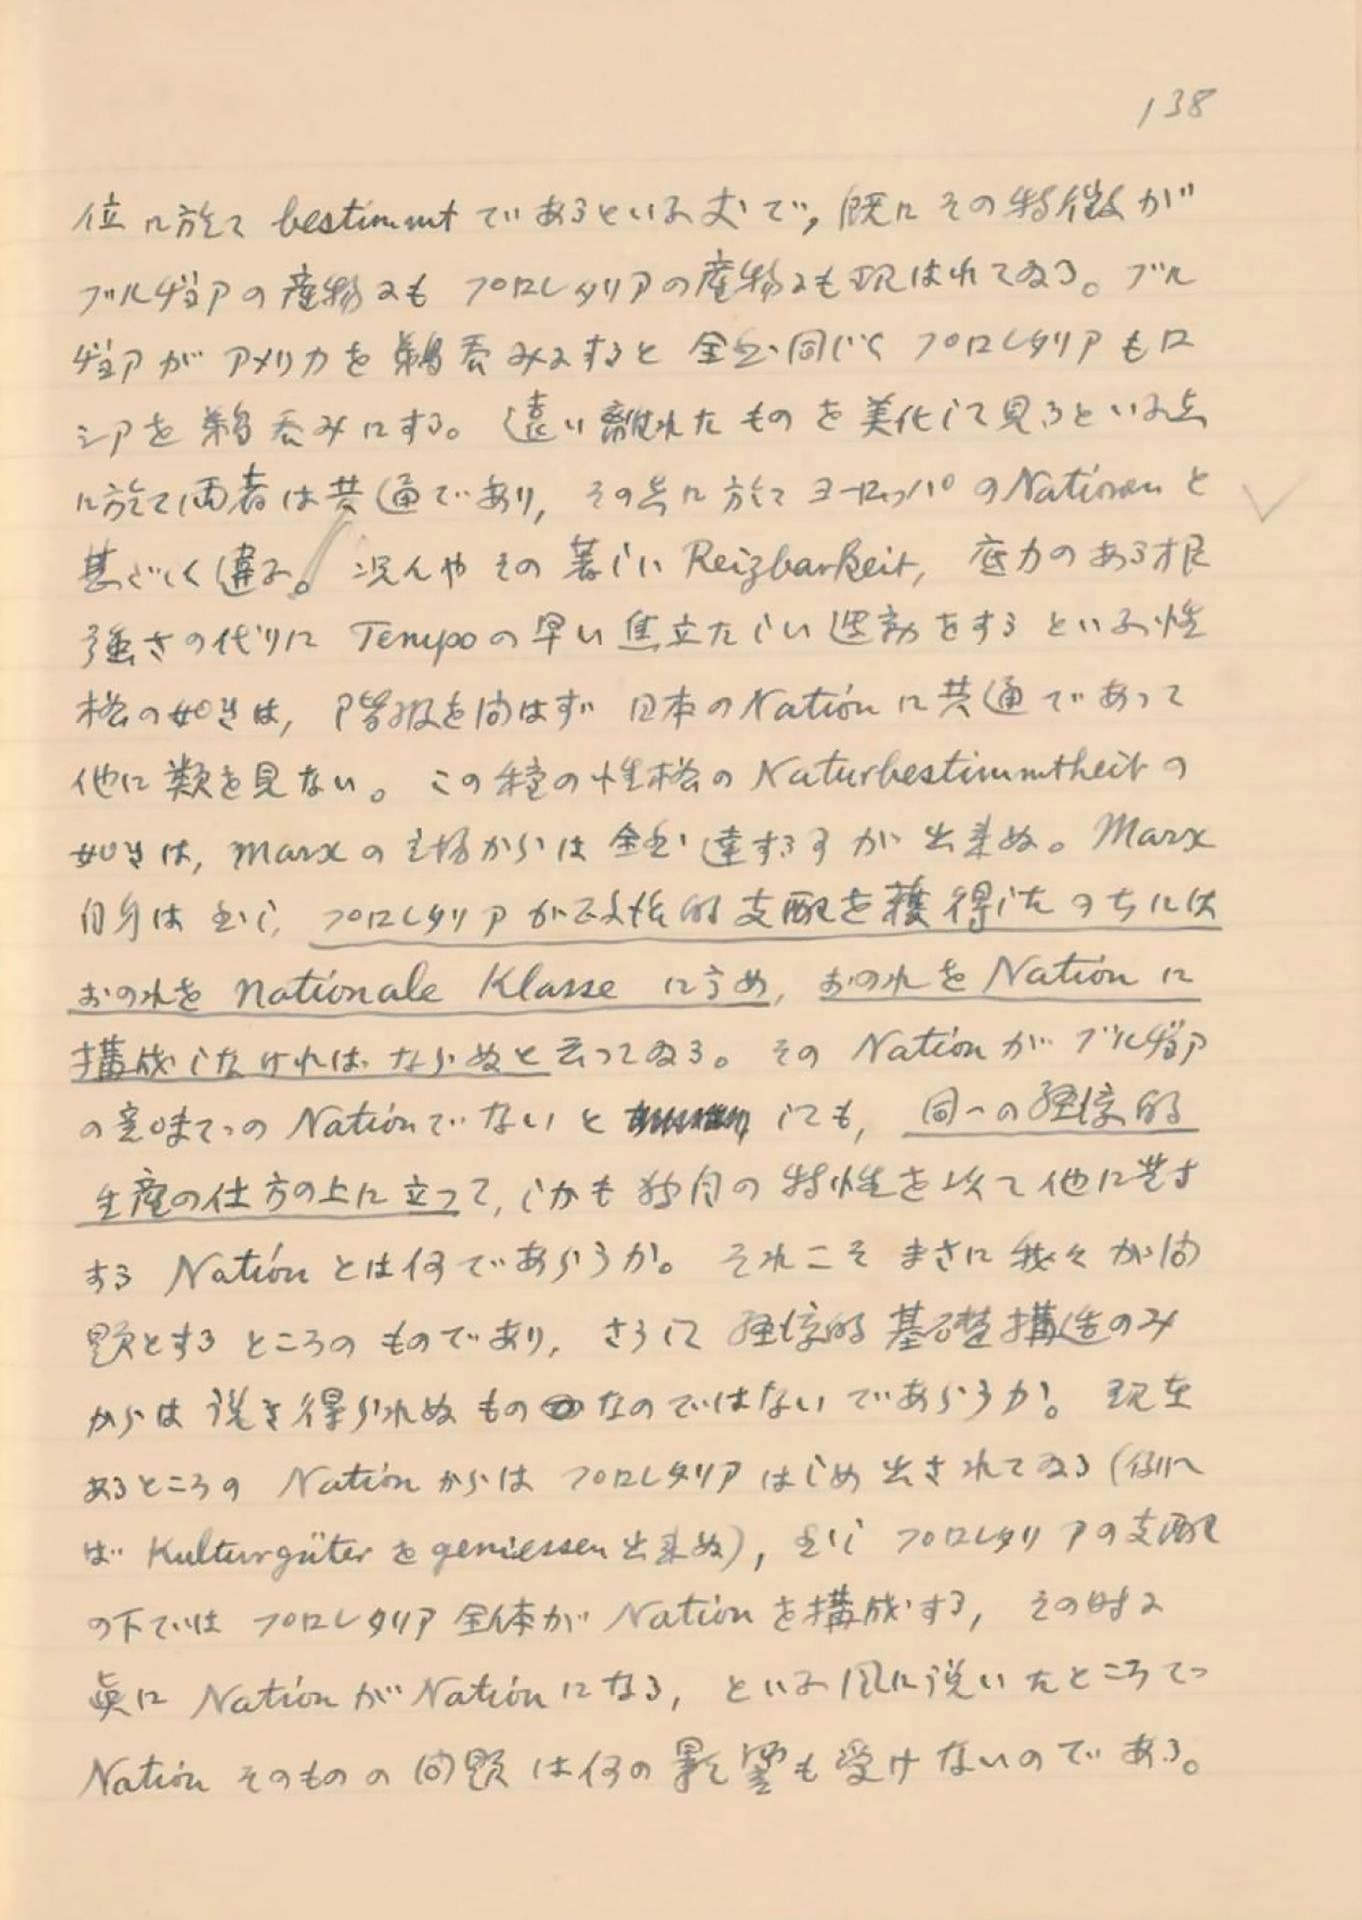 138
位に於て bestimmt であるといふ丈で, 既に その特徴が
ブルヂョアの産物にも プロレタリアの産物にも現はれてゐる。ブル
ヂョアが アメリカを 鵜呑みにすると 全然同じく プロレタリアもロ
シアを 鵜呑みにする。 遠い離れたものを美化して見るといふ点
に於て両者は共通であり, その点に於て ヨーロッパの Nationen と
甚だしく違ふ。 況んや その 著しい Reizbarkeit, 底力のある根
強さの代りに Tempo の早い焦立たしい運動をするといふ性
格の如きは, 階級を問はず 日本の Nation に共通であって
他に類を見ない。 この種の性格の Naturbestimmtheit の
如きは, Marx の立場からは 全然達する事が出来ぬ。 Marx
自身は 然し, プロレタリアが政治的支配を獲得したのちには
おのれを nationale Klasse に高め, おのれを Nation に
構成しなければならぬと云ってゐる。 その Nation が ブルヂョア
の意味での Nation でないと しても, 同一の経済的
生産の仕方の上に立って, しかも独自の特性を以て他に対す
する Nation とは何であらうか。 それこそ まさに我々が問
題とするところのものであり, さうして 経済的基礎構造のみ
からは説き得られぬもの なのではないであらうか。 現在
あるところの Nation からは プロレタリアはしめ出されてゐる (例へ
ば Kulturgüter を geniessen 出来ぬ), 然し プロレタリアの支配
の下では プロレタリア全体が Nation を構成する, その時に
眞に Nation が Nation になる, といふ風に説いたところで
Nation そのものの問題は何の影響も受けないのである。